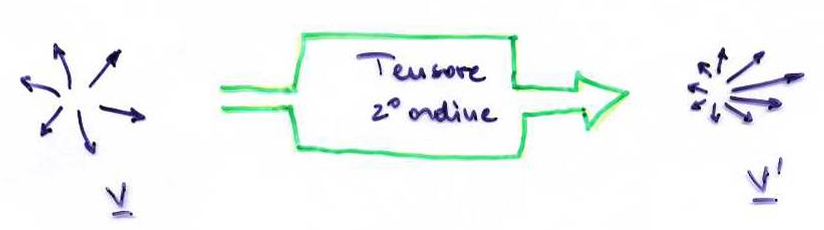 Tensore
2° ordine
V
V'